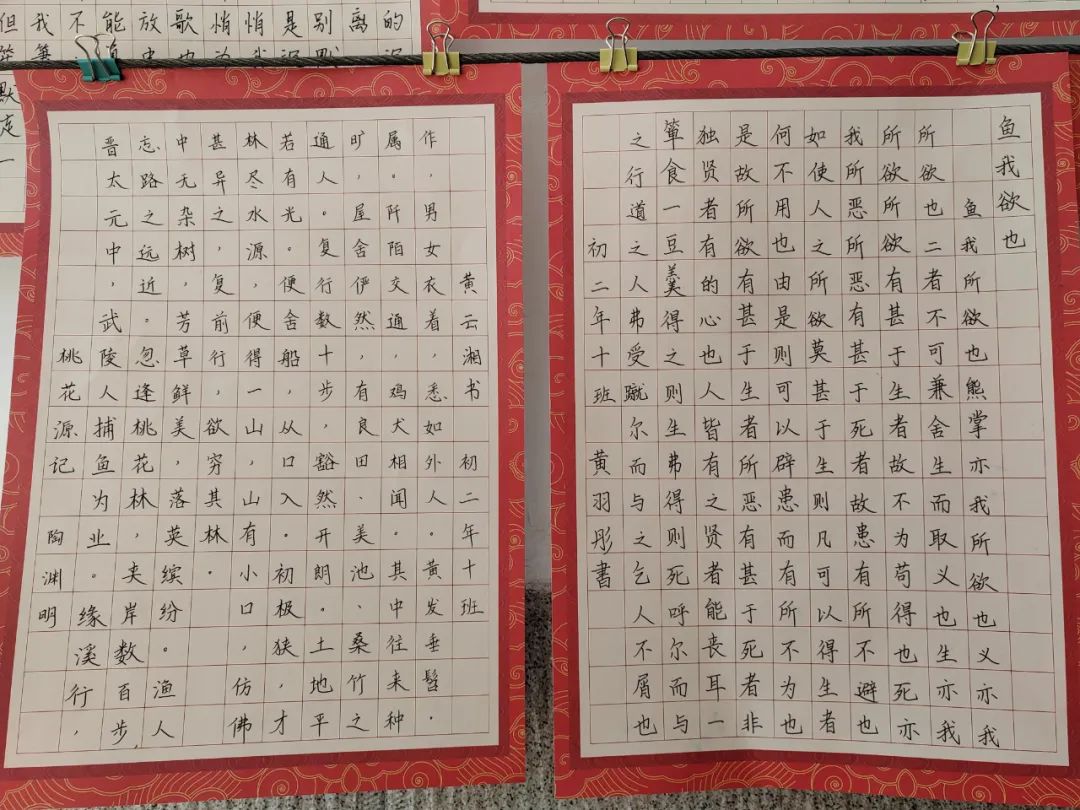 但我不能放歌悄悄是别离的
虫也为我沉默
默
一
桃花源记 陶渊明
晋太元中，武陵人捕鱼为业。缘溪行，
忘路之远近。忽逢桃花林，夹岸数百步
中无杂树，芳草鲜美，落英缤纷。渔人
甚异之，复前行，欲穷其林。
林尽水源，便得一山，山有小口，仿佛
若有光。便舍船，从口入。初极狭，才
通人。复行数十步，豁然开朗。土地平
旷，屋舍俨然，有良田、美池、桑竹之
属。阡陌交通，鸡犬相闻。其中往来种
作，男女衣着，悉如外人。黄发垂髫。
黄云湘书 初二年十班
鱼我欲也
鱼我所欲也熊掌亦我所欲也义亦我
所欲也二者不可兼舍生而取义也生亦我
所欲所欲有甚于生者故不为苟得也死亦
我所恶所恶有甚于死者故患有所不避也
如使人之所欲莫甚于生则凡可以得生者
何不用也由是则可以辟患而有所不为也
是故所欲有甚于生者所恶有甚于死者非
独贤者有的心也人皆有之贤者能丧耳一
箪食一豆羹得之则生弗得则死呼尔而与
之行道之人弗受蹴尔而与之乞人不屑也
初二年十班 黄羽彤書